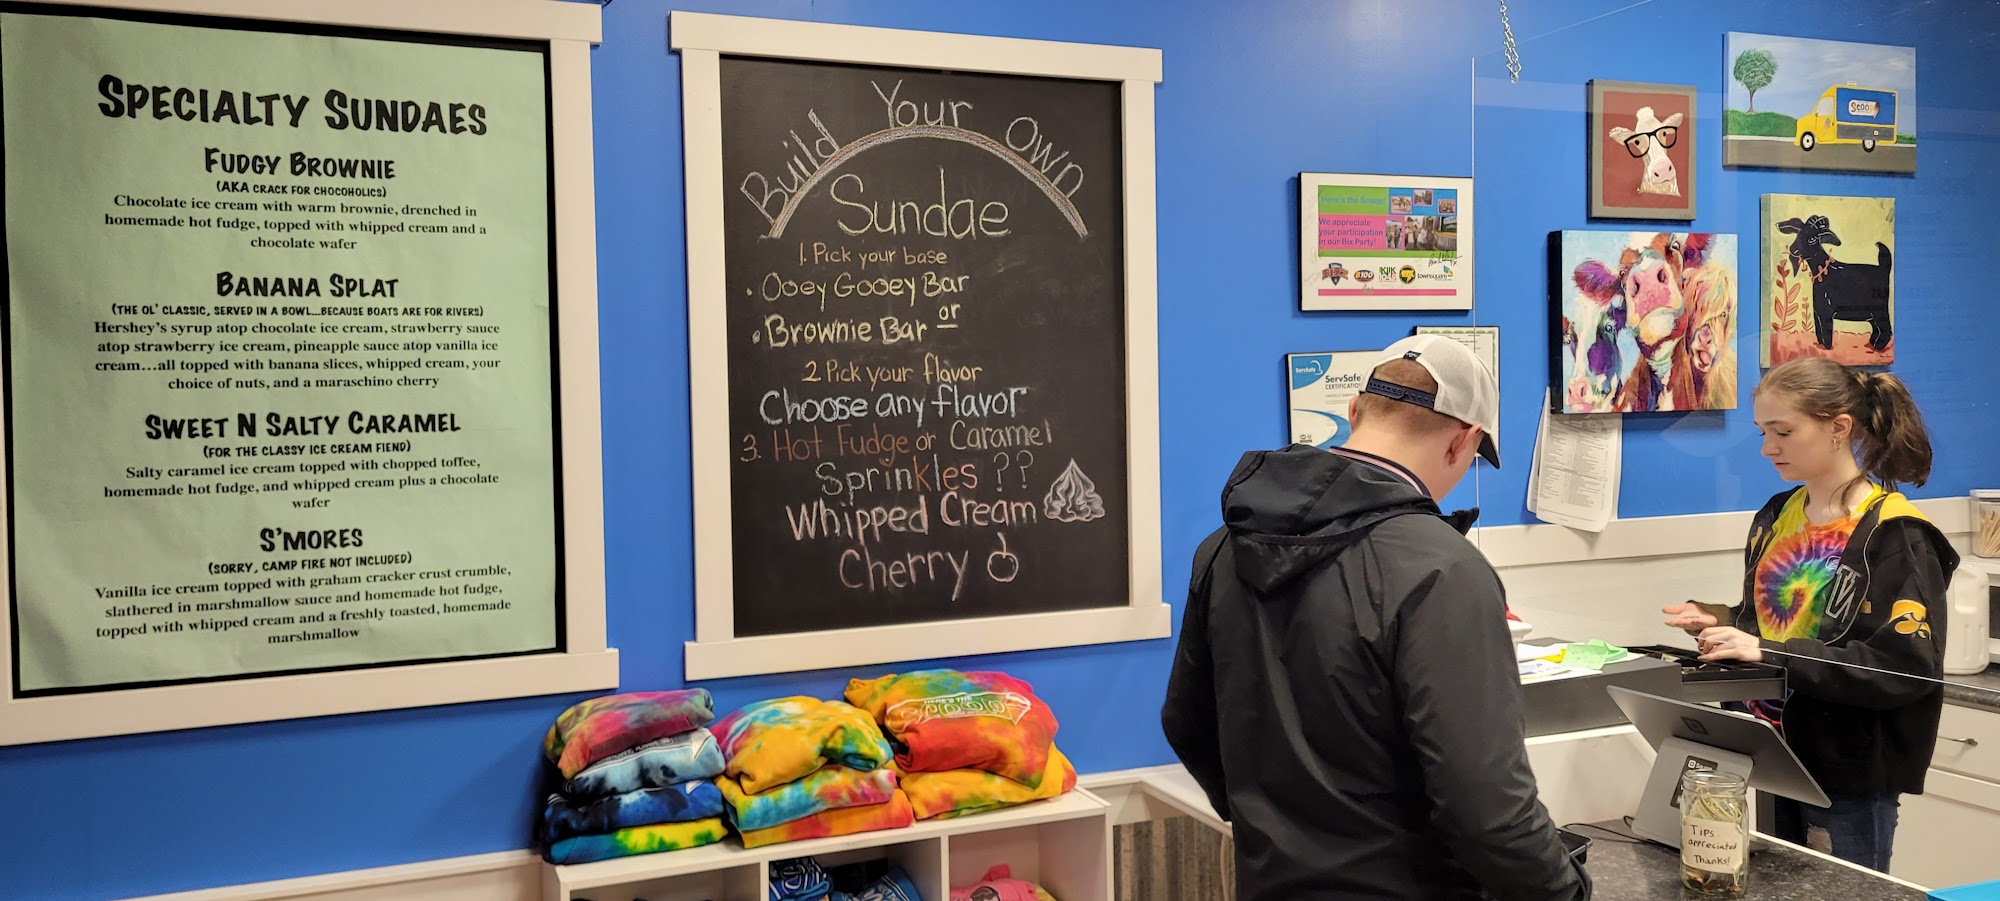 SPECIALTY SUNDAES
FUDGY BROWNIE
(AKA CRACK FOR CHOCOHOLICS)
Chocolate ice cream with warm brownie, drenched in
homemade hot fudge, topped with whipped cream and a
chocolate wafer
BANANA SPLAT
(THE OL' CLASSIC, SERVED IN A BOWL...BECAUSE BOATS ARE FOR RIVERS)
Hershey's syrup atop chocolate ice cream, strawberry sauce
atop strawberry ice cream, pineapple sauce atop vanilla ice
cream...all topped with banana slices, whipped cream, your
choice of nuts, and a maraschino cherry
SWEET N SALTY CARAMEL
(FOR THE CLASSY ICE CREAM FIEND)
Salty caramel ice cream topped with chopped toffee,
homemade hot fudge, and whipped cream plus a chocolate
wafer
S'MORES
(SORRY, CAMP FIRE NOT INCLUDED)
Vanilla ice cream topped with graham cracker crust crumble,
slathered in marshmallow sauce and homemade hot fudge,
topped with whipped cream and a freshly toasted, homemade
marshmallow
Build Your Own
Sundae
1. Pick your base
• Ooey Gooey Bar
or
• Brownie Bar
2. Pick your flavor
Choose any flavor
3. Hot Fudge or Caramel
Sprinkles ??
Whipped Cream
Cherry
Here's the Scoop!
We appreciate
your participation
in our Bix Party!
BIX
B100
KIIK
townsquare
ServSafe
ServSafe
CERTIFICATION
Scoop
HERE'S THE
SCOOP
Square
Tips
appreciated
Thanks!